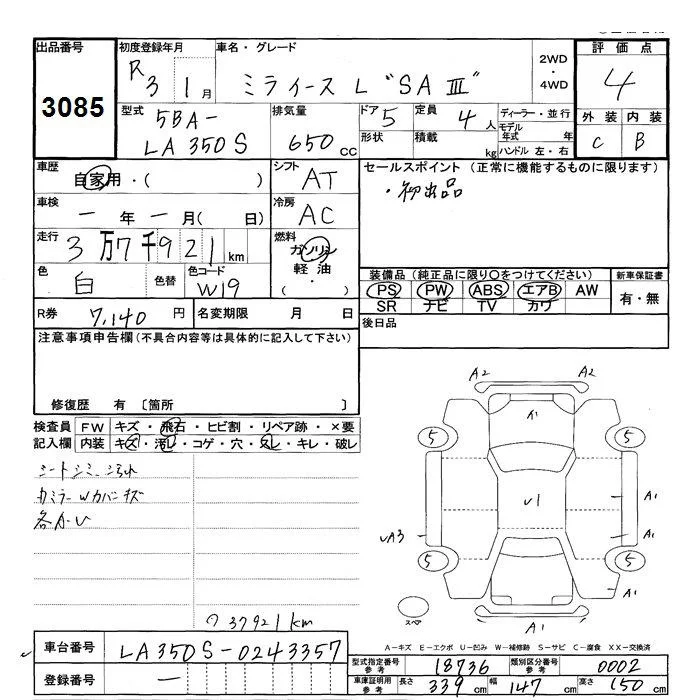 出品番号
3085
初度登録年月
R 3 年 1 月
車名・グレード
ミライース L "SAⅢ"
2WD
・
4WD
評価点
4
外装 内装
C B
型式
5BA-
LA350S
排気量
650 cc
ドア 5
定員 4 人
形状
積載 kg
ディーラー・並行
モデル年式 年
ハンドル 左・右
車歴
自家用・( )
シフト
AT
セールスポイント(正常に機能するものに限ります)
・初出品
車検
一 年 一 月( 日)
冷房
AC
走行
3万7千921km
燃料
ガソリン
軽油
( ・ )
色
白
色替
色コード
W19
装備品(純正品に限り○をつけてください)
PS PW ABS エアB AW
SR ナビ TV カワ
新車保証書
有・無
R券 7,140 円
名変期限 月 日
後日品
注意事項申告欄(不具合内容等は具体的に記入して下さい)
修復歴 有〔箇所 〕
検査員記入欄
FW キズ・飛石・ヒビ割・リペア跡・×要
内装 キズ・汚れ・コゲ・穴・スレ・キレ・破レ
シートシミ、汚れ
カミラーWカバーキズ
各かい
37921km
A2 A2
5 5
A1
U1
UA3
A1
5 5
A1
A1
スペア
A-キズ E-エクボ U-凹み W-補修跡 S-サビ C-腐食 XX-交換済
車台番号
LA350S-0243357
登録番号
一
型式指定番号 参考 18736
類別区分番号 参考 0002
車庫証明用 参考 長さ 339 cm 幅 147 cm 高さ 150 cm